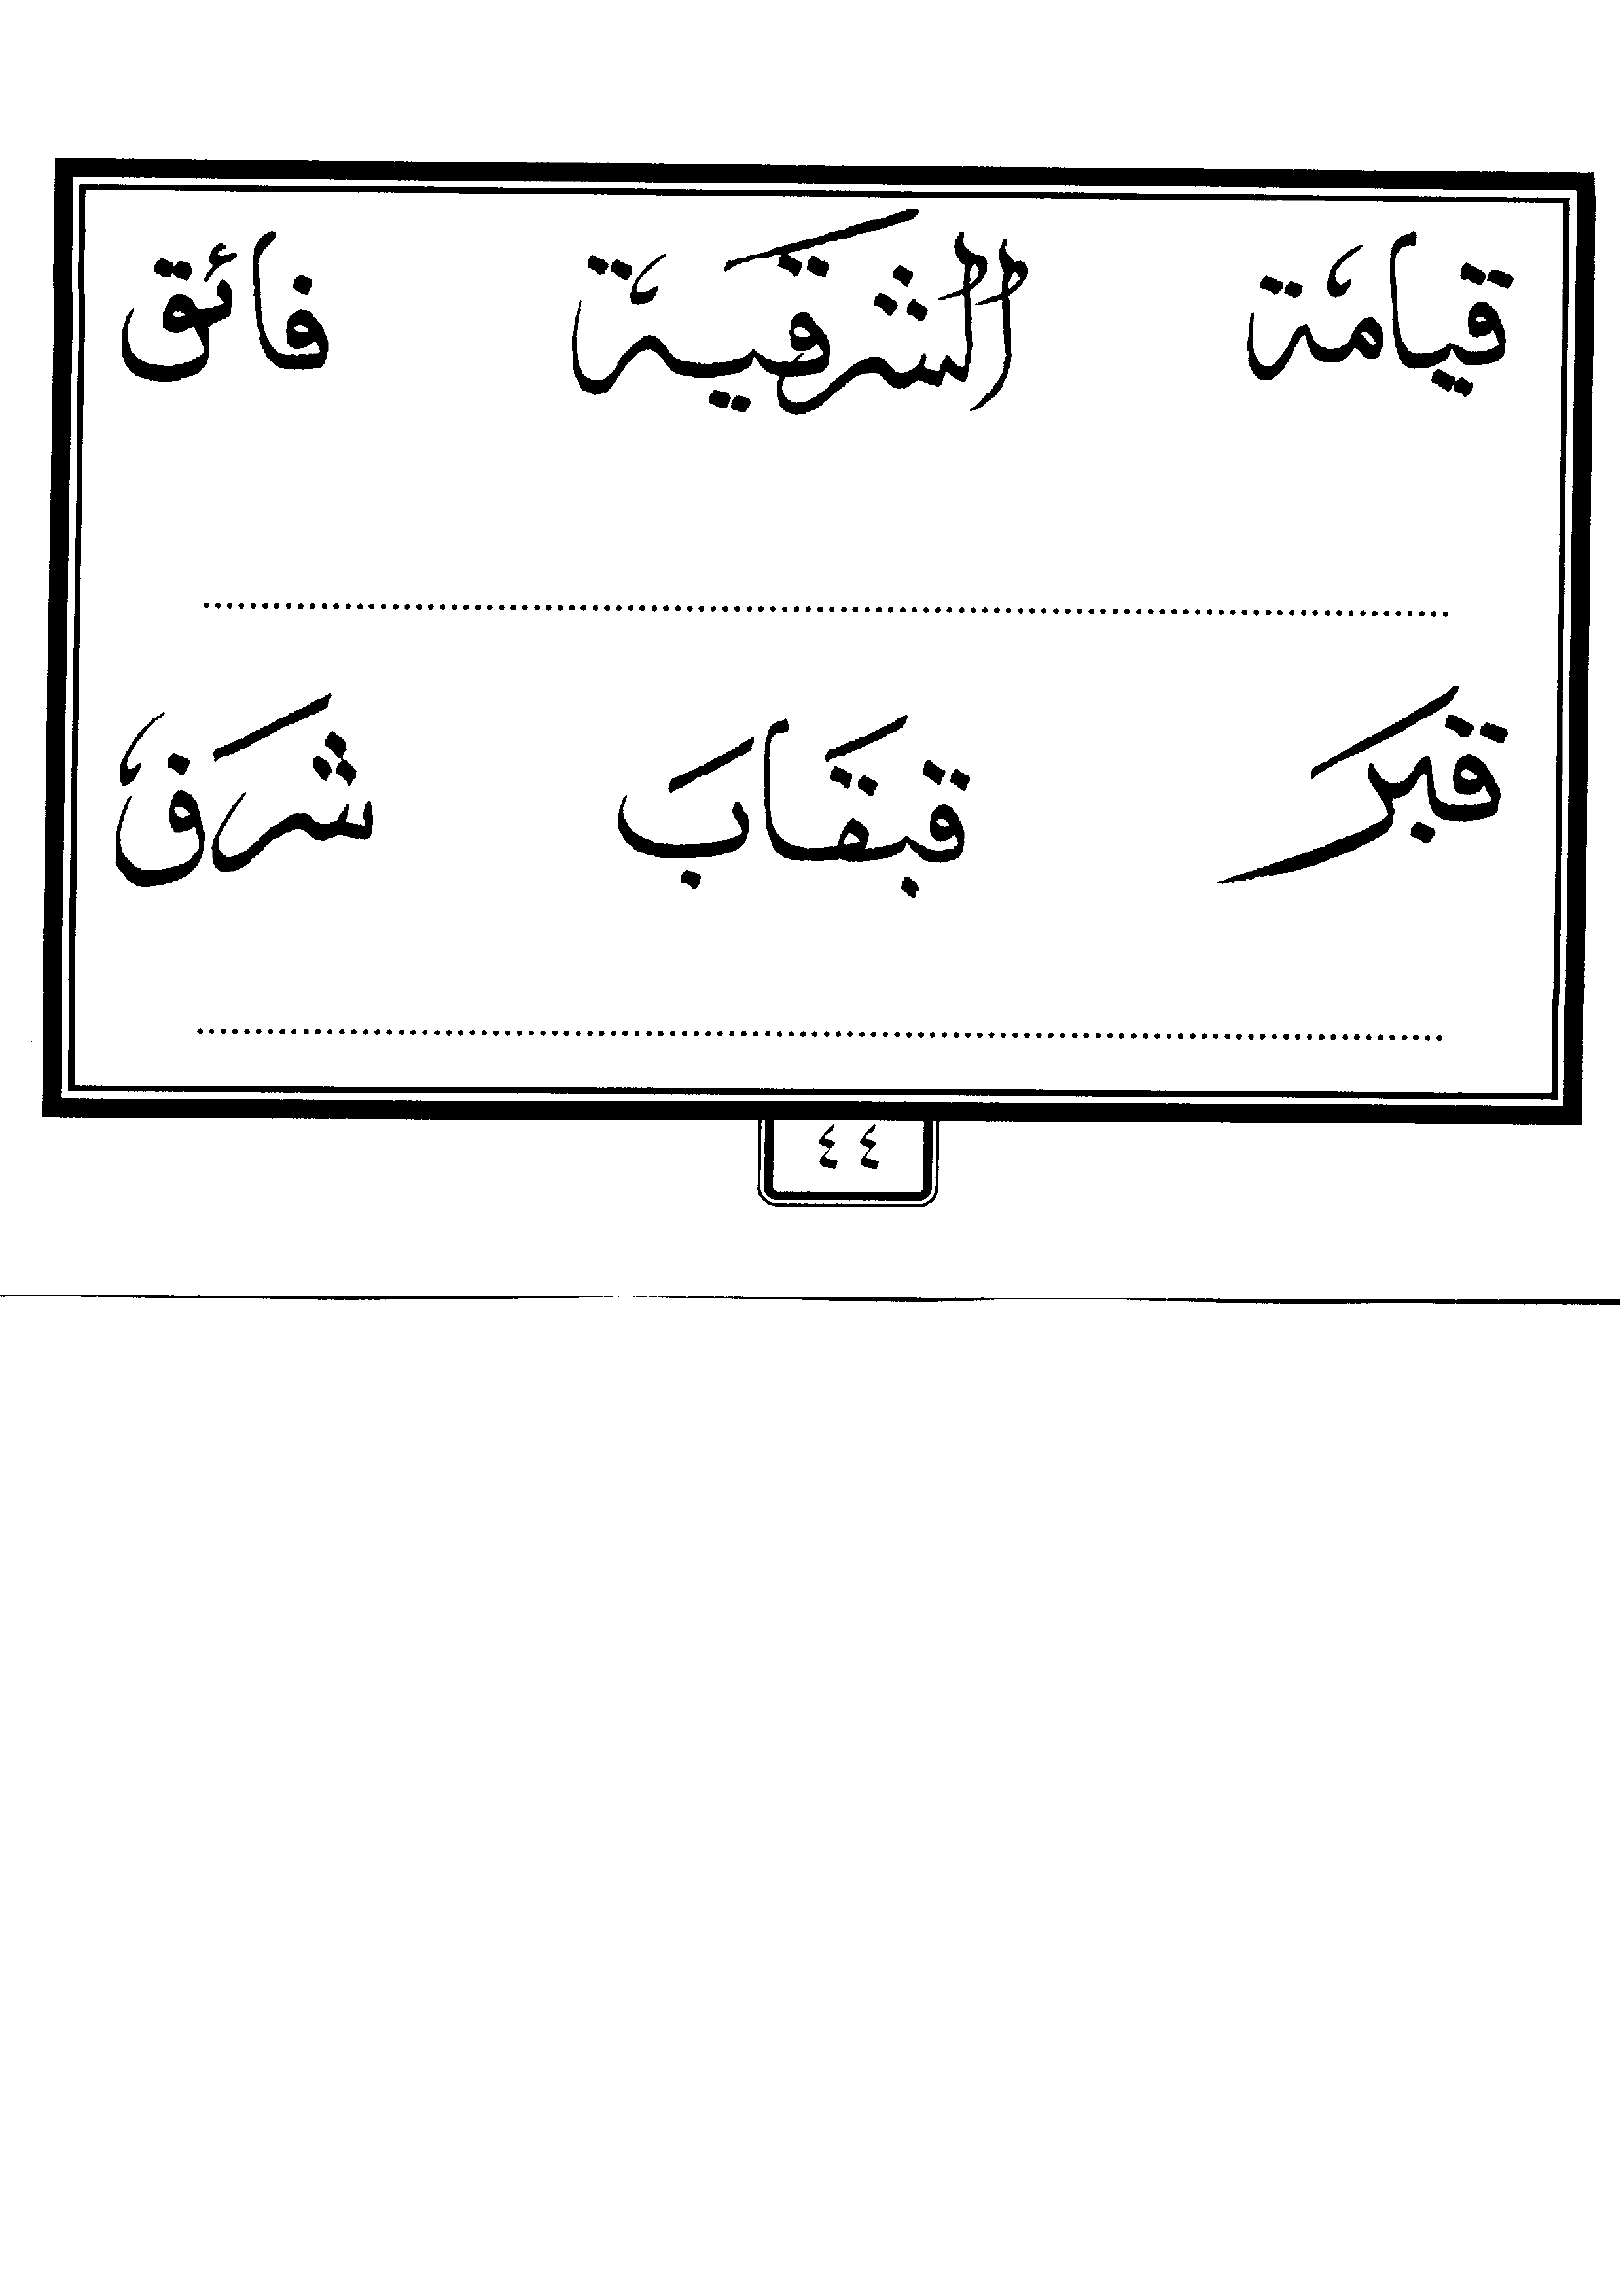 قيامة الشرقية فائق
قبر قبقاب شرف
٤٤